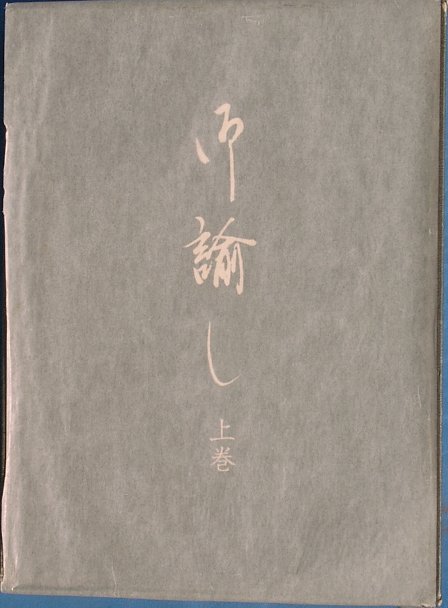 御諭し
上巻